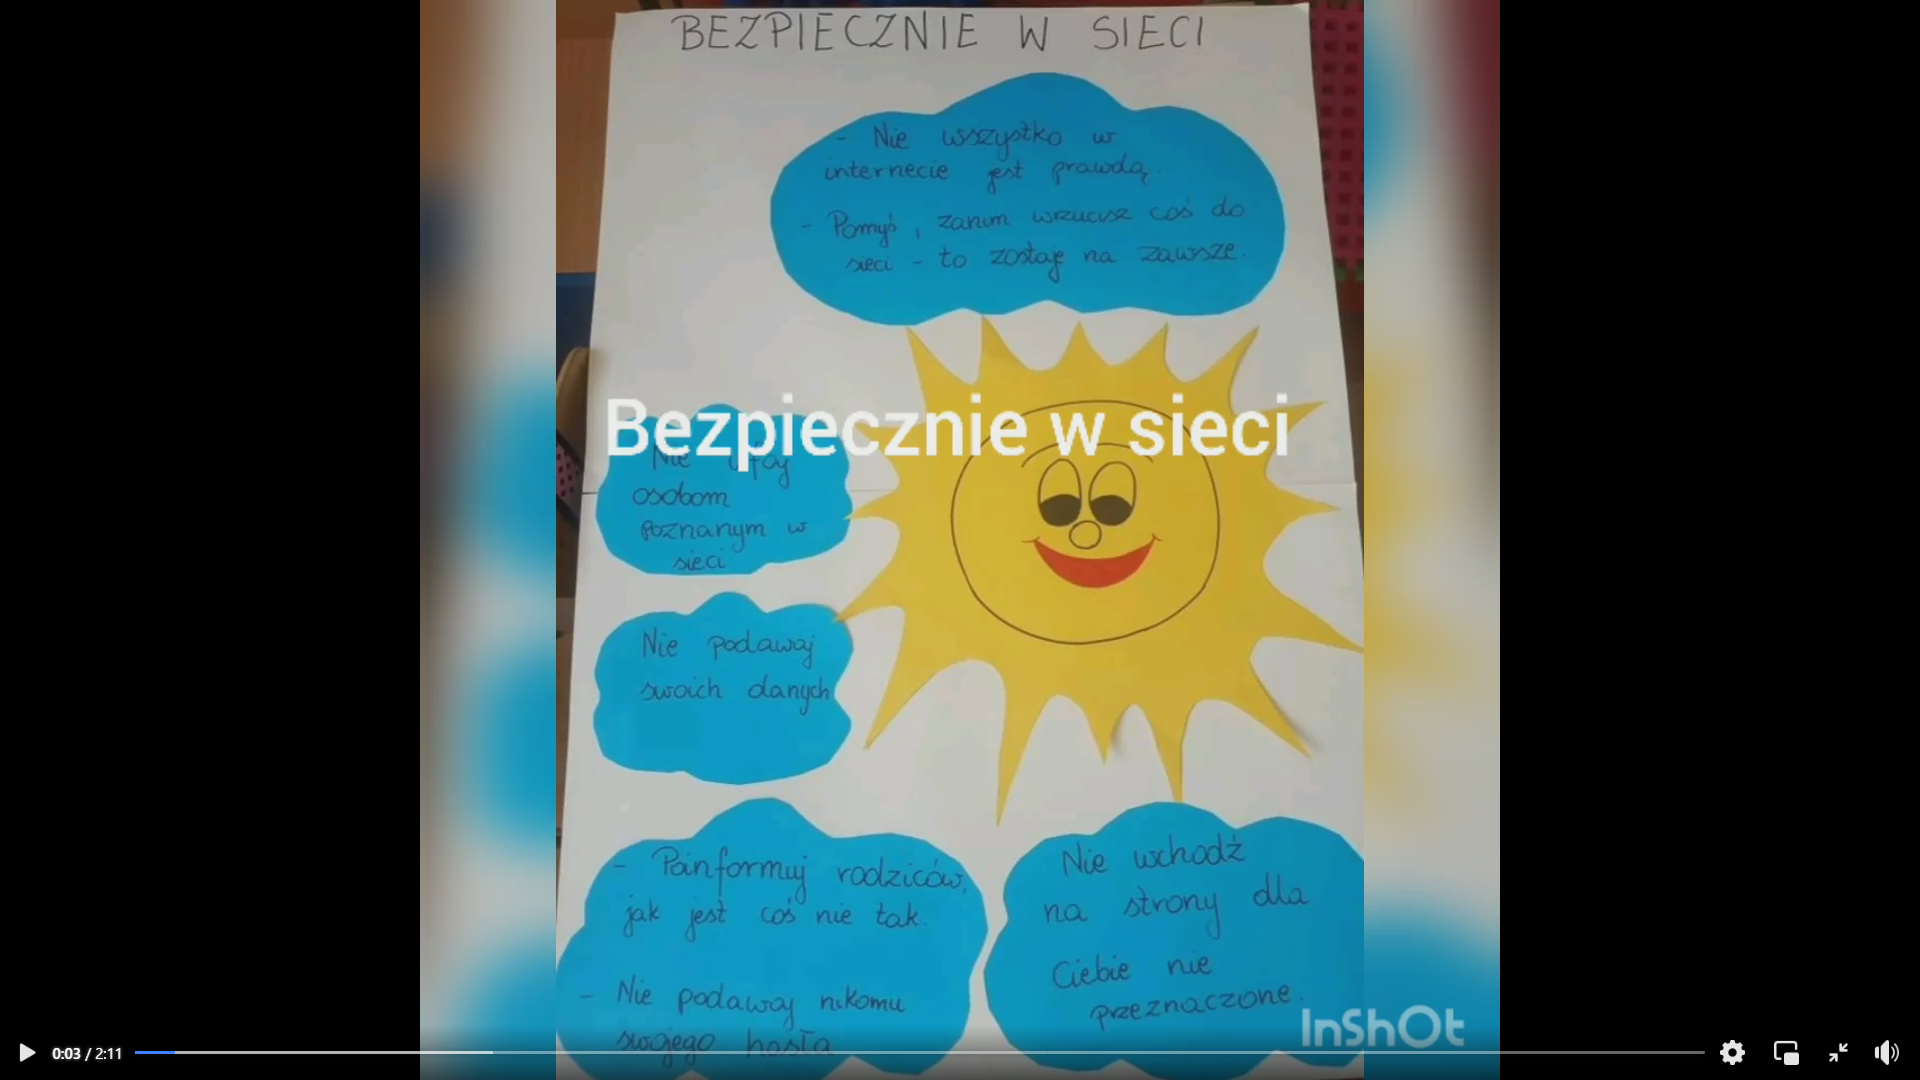 BEZPIECZNIE W SIECI
- Nie wszystko w
internecie jest prawdą
- Pomyś, zanim wrzucisz coś do
sieci - to zostaje na zawsze.
Bezpiecznie w sieci
Nie ufaj
osobom
poznanym w
sieci
Nie podawaj
swoich danych
- Poinformuj rodziców,
jak jest coś nie tak.
- Nie podawaj nikomu
swojego hasła
Nie wchodź
na strony dla
Ciebie nie
przeznaczone.
InShOt
0:03 / 2:11